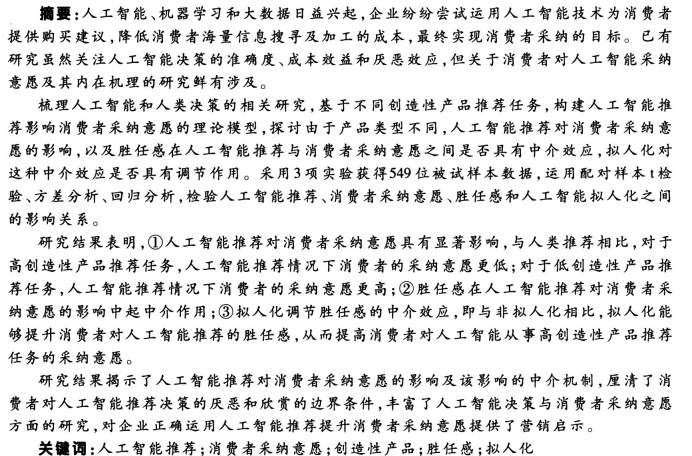 摘要:人工智能、机器学习和大数据日益兴起,企业纷纷尝试运用人工智能技术为消费者
提供购买建议,降低消费者海量信息搜寻及加工的成本,最终实现消费者采纳的目标。已有
研究虽然关注人工智能决策的准确度、成本效益和厌恶效应,但关于消费者对人工智能采纳
意愿及其内在机理的研究鲜有涉及。
梳理人工智能和人类决策的相关研究,基于不同创造性产品推荐任务,构建人工智能推
荐影响消费者采纳意愿的理论模型,探讨由于产品类型不同,人工智能推荐对消费者采纳意
愿的影响,以及胜任感在人工智能推荐与消费者采纳意愿之间是否具有中介效应,拟人化对
这种中介效应是否具有调节作用。采用3项实验获得549位被试样本数据,运用配对样本t检
验、方差分析、回归分析,检验人工智能推荐、消费者采纳意愿、胜任感和人工智能拟人化之间
的影响关系。
研究结果表明,①人工智能推荐对消费者采纳意愿具有显著影响,与人类推荐相比,对于
高创造性产品推荐任务,人工智能推荐情况下消费者的采纳意愿更低;对于低创造性产品推
荐任务,人工智能推荐情况下消费者的采纳意愿更高;②胜任感在人工智能推荐对消费者采
纳意愿的影响中起中介作用;③拟人化调节胜任感的中介效应,即与非拟人化相比,拟人化能
够提升消费者对人工智能推荐的胜任感,从而提高消费者对人工智能从事高创造性产品推荐
任务的采纳意愿。
研究结果揭示了人工智能推荐对消费者采纳意愿的影响及该影响的中介机制,厘清了消
费者对人工智能推荐决策的厌恶和欣赏的边界条件,丰富了人工智能决策与消费者采纳意愿
方面的研究,对企业正确运用人工智能推荐提升消费者采纳意愿提供了营销启示。
关键词:人工智能推荐;消费者采纳意愿;创造性产品;胜任感;拟人化